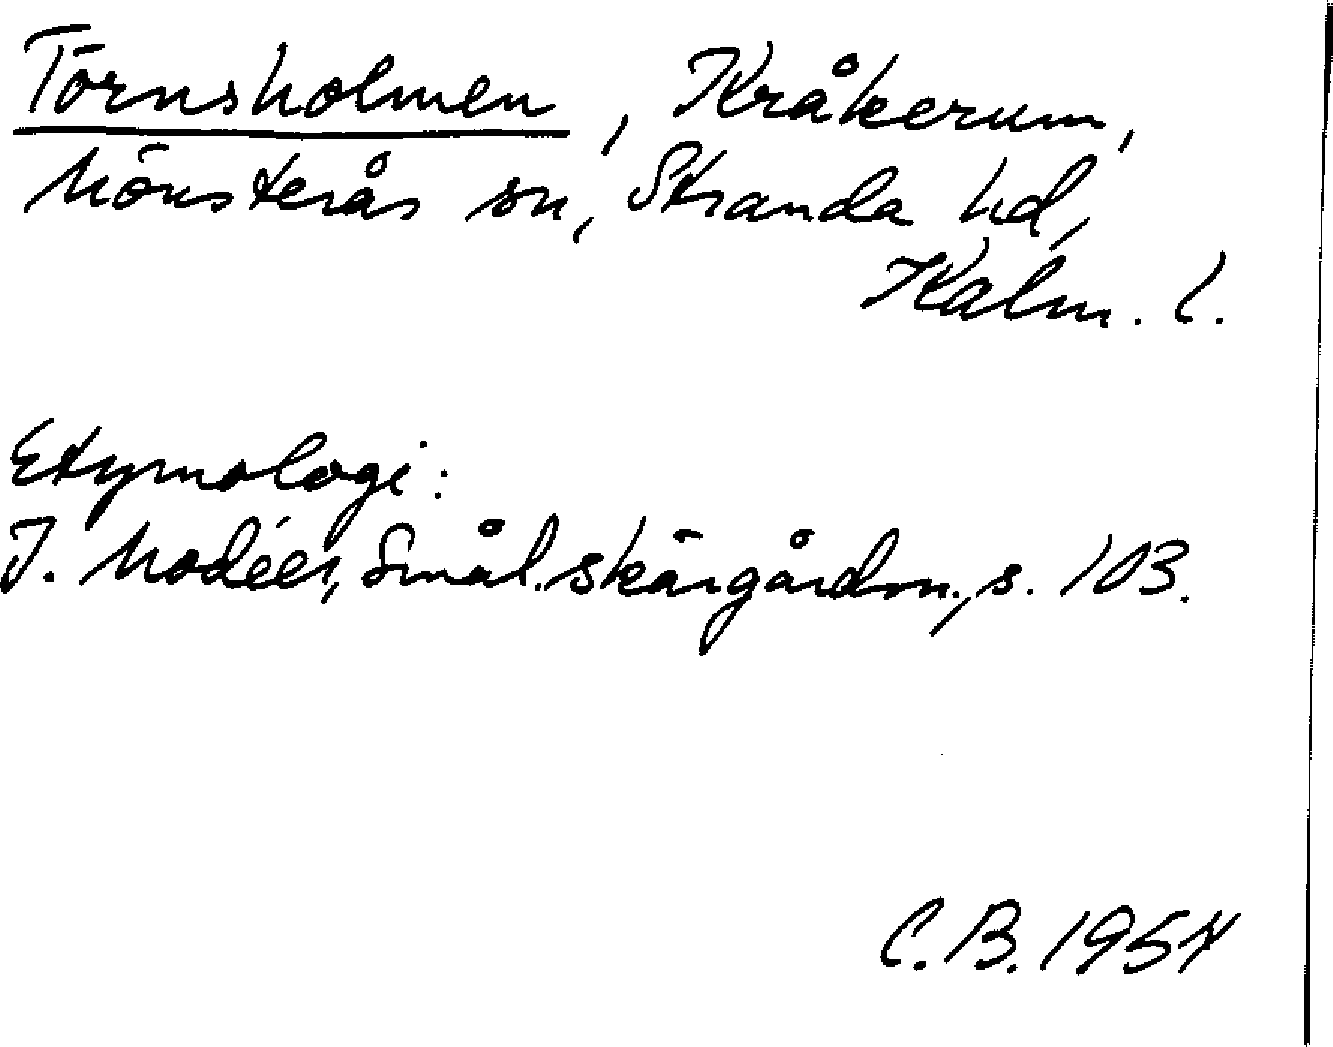 Törnsholmen, Kråkerum,
Mönsterås sn, Stranda hd,
Kalm. l.
Etymologi:
J. Modéer, Smål. skärgårdsn., s. 103.
C. B. 1957